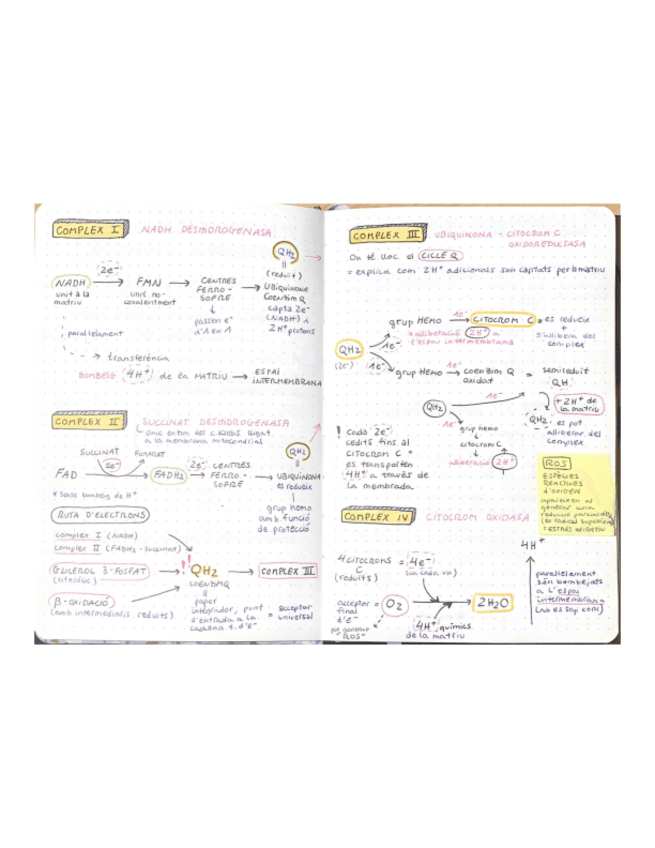 COMPLEX I
NADH DESHIDROGENASA
QH2
(reduït)
NADH
2e-
FMN
CENTRES
FERRO-
SOFRE
UBIQUINONA
COENZIM Q
unit a la
matriu
unit no-
covalentment
passen e-
d'A en 1
capta 2e-
(NADH) i
2H+ protons
paral·lelament
transferència
BOMBEIG 4H+ de la MATRIU → ESPAI
INTERMEMBRANA
COMPLEX II
SUCCINAT DESHIDROGENASA
únic enzim del c. Krebs lligat
a la membrana mitocondrial
SUCCINAT
FUMARAT
QH2
FAD
2e-
FADH2
2e-
CENTRES
FERRO-
SOFRE
UBIQUINONA
es redueix
* sense bombeig de H+
grup hemo
amb funció
de protecció
RUTA D'ELECTRONS
complex I (NADH)
complex II (FADH2 - succinat)
GLICEROL 3-FOSFAT
(citosòlic)
! QH2
COENZIM Q
COMPLEX III
β-OXIDACIÓ
(amb intermediaris reduïts)
paper
integrador, punt
d'entrada a la
cadena t. d'e-
= acceptor
universal
COMPLEX III
UBIQUINONA - CITOCROM C
OXIDOREDUCTASA
On té lloc el CICLE Q
= explica com 2H+ addicionals són captats per la matriu
grup HEMO
1e-
CITOCROM C
= es redueix
+
s'allibera del
complex
* alliberació 2H+ a
l'espai intermembrana
QH2
(2e-)
1e-
1e-
grup HEMO
1e-
coenzim Q
oxidat
= semireduït
QH
QH2
1e-
+ 2H+ de
la matriu
1e-
grup hemo
citocrom C
alliberació 2H+
QH2
es pot
alliberar del
complex
! Cada 2e-
cedits fins al
CITOCROM C =
es transporten
4H+ a través de
la membrana
ROS
ESPÈCIES
REACTIVES
d'OXIGEN
apareixen al
generar una
reducció parcial d'O2
(es radical superòxid)
= ESTRÈS OXIDATIU
COMPLEX IV
CITOCROM OXIDASA
4H+
4 CITOCROMS = 4e-
(reduïts)
(un cada un)
acceptor
final
d'e-
= O2
2H2O
pot generar
"ROS"
4H+ químics
de la matriu
paral·lelament
són bombejats
a l'espai
intermembrana
(no es sap com)